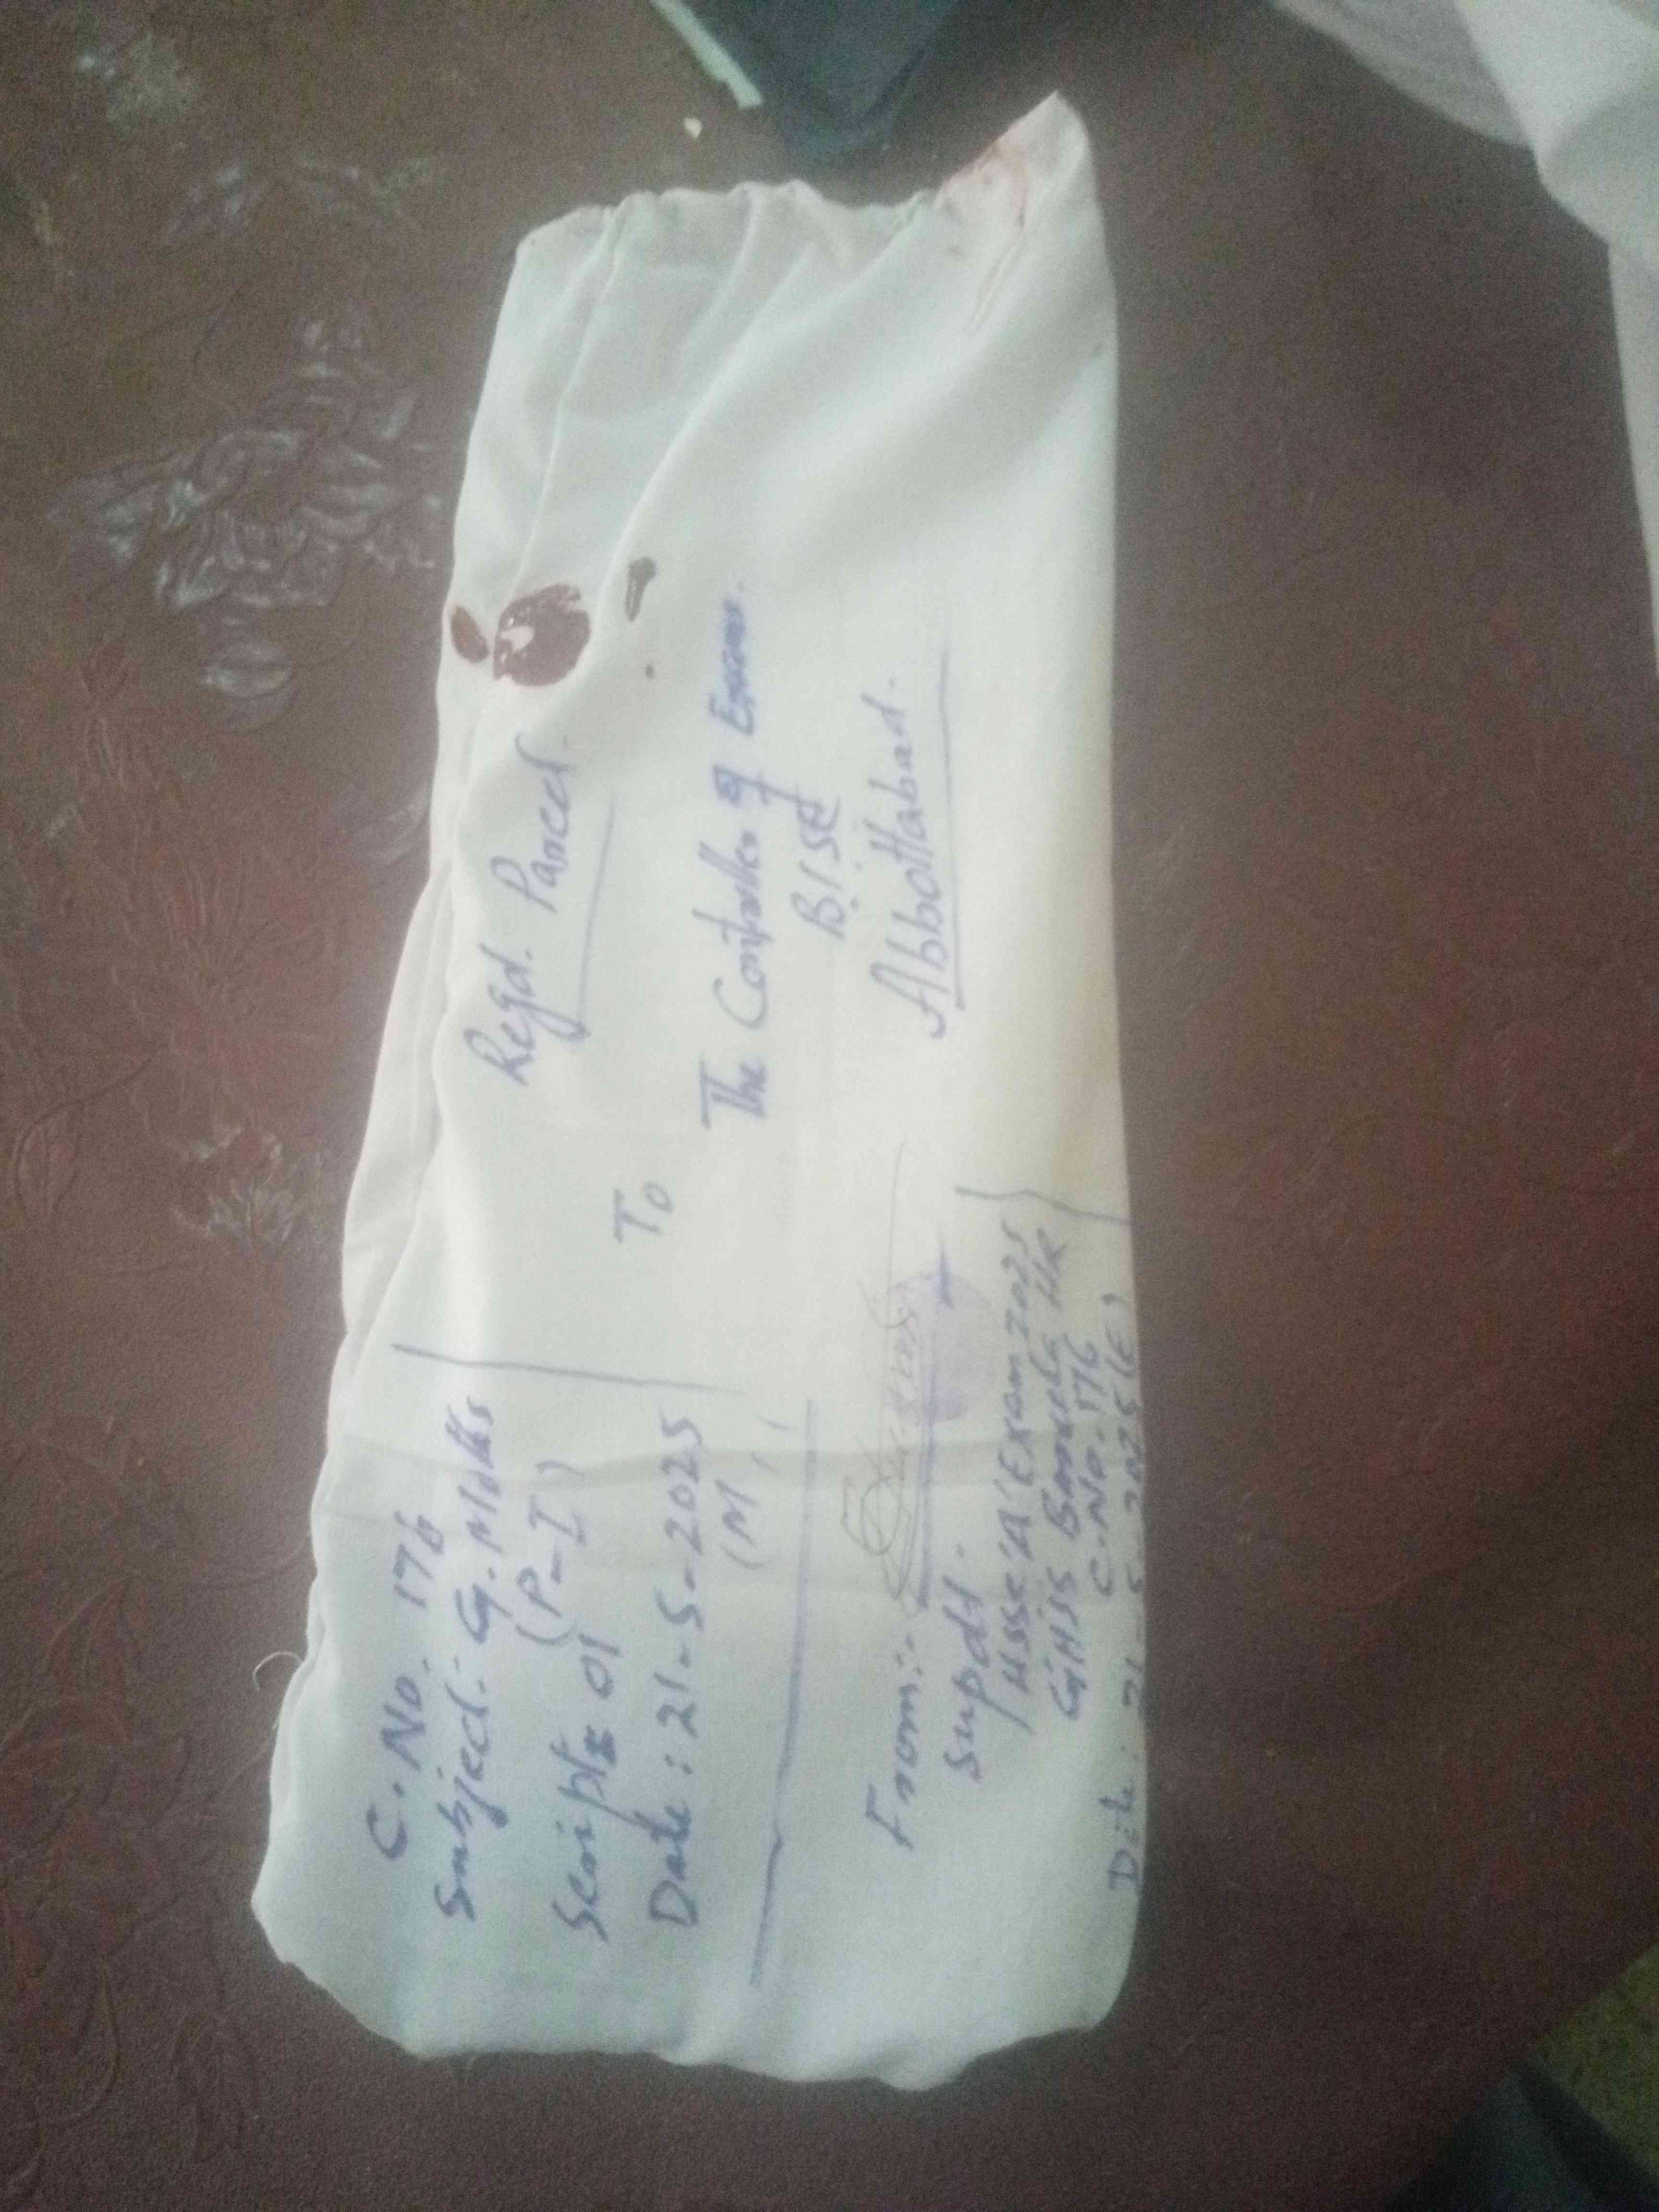 Regd. Parcel.
C. No. 176
Subject:- G. Maths
(P-I)
Scripts 01
Date: 21-5-2025
(M)
To
The Controller of Exams.
B.I.SE
Abbottabad.
From:-
Supdt.
HSSC 'A' Exam 2025
GHSS
C. No. 176
Dt: 21-5-2025 (E)